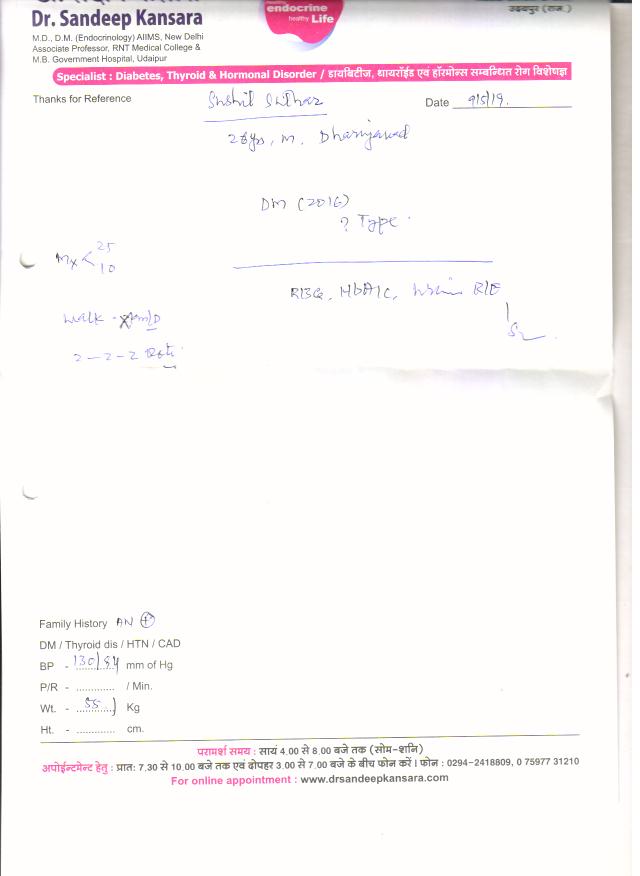 endocrine
healthy Life
उदयपुर (राज.)
Dr. Sandeep Kansara
M.D., D.M. (Endocrinology) AIIMS, New Delhi
Associate Professor, RNT Medical College &
M.B. Government Hospital, Udaipur
Specialist : Diabetes, Thyroid & Hormonal Disorder / डायबिटीज, थायरॉईड एवं हॉरमोन्स सम्बन्धित रोग विशेषज्ञ
Thanks for Reference
Sushil Suthar
Date 9/5/19.
28yrs, M. Dhariyawad
DM (2016)
? Type.
Mx < 25
10
RBG, HbA1C, Urine R/E
Walk -
2-2-2 Roti
Family History AN +
DM / Thyroid dis / HTN / CAD
BP - 130/84 mm of Hg
P/R - ............. / Min.
Wt. - 55 Kg
Ht. - ............. cm.
परामर्श समय : सायं 4.00 से 8.00 बजे तक (सोम-शनि)
अपोईन्टमेन्ट हेतु : प्रात: 7.30 से 10.00 बजे तक एवं दोपहर 3.00 से 7.00 बजे के बीच फोन करें । फोन : 0294-2418809, 0 75977 31210
For online appointment : www.drsandeepkansara.com